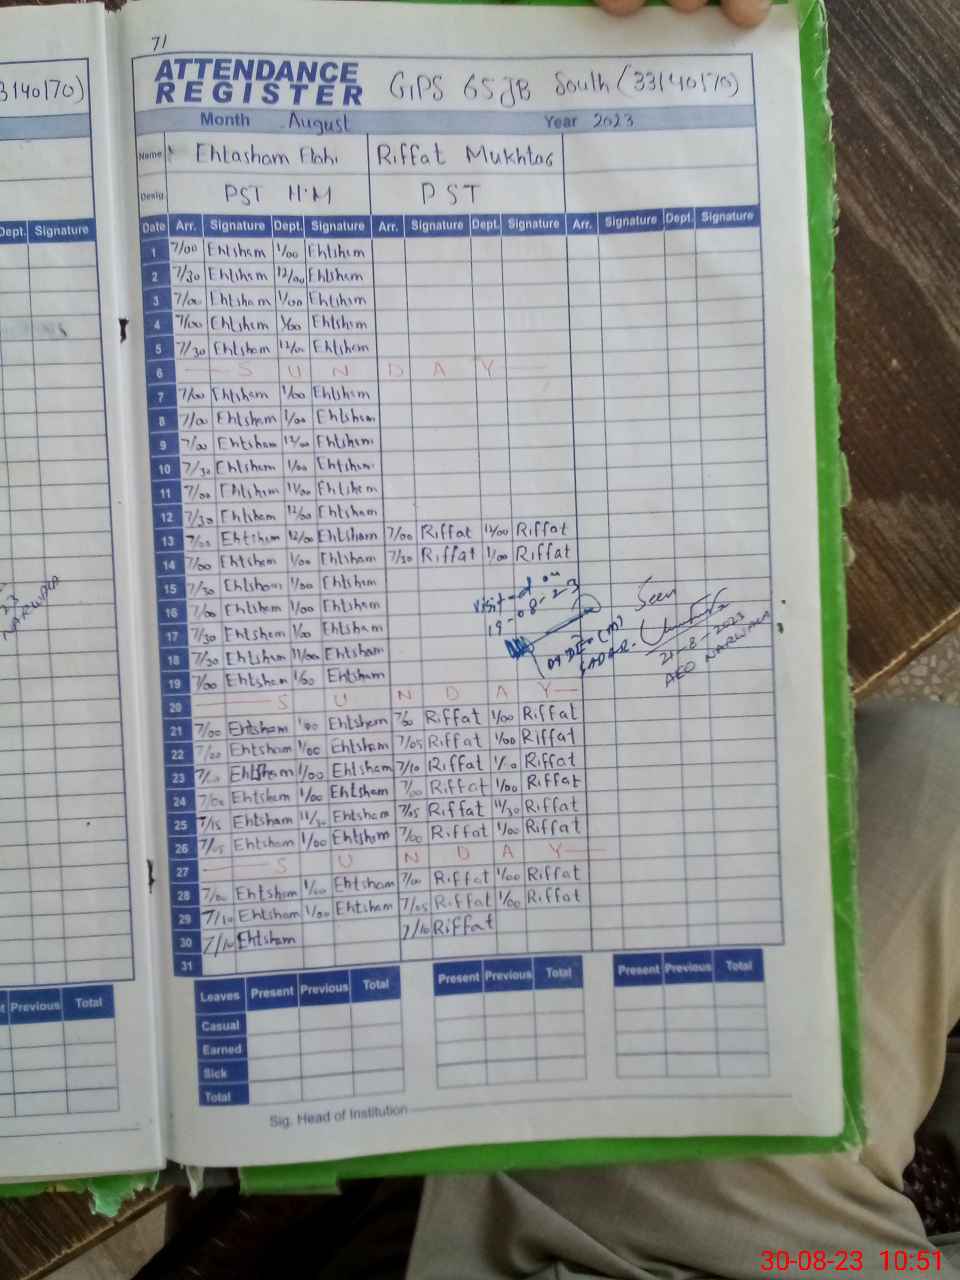 71
ATTENDANCE
REGISTER
GPS 65JB South (33140170)
Month August Year 2023
Name Ehtasham Elahi Riffat Mukhtar
Desig. PST H.M PST
Date Arr. Signature Dept. Signature Arr. Signature Dept. Signature Arr. Signature Dept. Signature
1 7/00 Ehtsham 1/00 Ehtsham
2 7/30 Ehtsham 12/00 Ehtsham
3 7/00 Ehtsham 1/00 Ehtsham
4 7/00 Ehtshem 1/00 Ehtshem
5 7/30 Ehtshem 12/00 Ehtshem
6 S U N D A Y
7 7/00 Ehtshem 1/00 Ehtshem
8 7/00 Ehtshem 1/00 Ehtshem
9 7/00 Ehtshem 12/00 Ehtshem
10 7/30 Ehtshem 1/00 Ehtshem
11 7/00 Ehtshem 11/00 Ehtshem
12 7/30 Ehtshem 12/00 Ehtshem
13 Ehtshem 12/00 Ehtsham 7/00 Riffat 12/00 Riffat
14 7/00 Ehtshem 1/00 Ehtshem 7/30 Riffat 1/00 Riffat
15 7/30 Ehtshem 1/00 Ehtshem
16 7/00 Ehtshem 1/00 Ehtshem
17 7/30 Ehtshem 1/00 Ehtshem
18 7/30 Ehtshem 11/00 Ehtsham
19 7/00 Ehtsham 1/00 Ehtsham
visited on
19-08-23
Seen
21-8-2023
AEO NARWALA
20 S U N D A Y
21 7/00 Ehtsham 1/00 Ehtshem 7/00 Riffat 1/00 Riffat
22 7/00 Ehtshem 1/00 Ehtshem 7/05 Riffat 1/00 Riffat
23 Ehtsham 1/00 Ehtshem 7/10 Riffat 1/00 Riffat
24 7/00 Ehtshem 1/00 Ehtshem 7/00 Riffat 1/00 Riffat
25 7/15 Ehtsham 11/30 Ehtsham 7/05 Riffat 11/30 Riffat
26 7/05 Ehtsham 1/00 Ehtshem 7/00 Riffat 1/00 Riffat
27 S U N D A Y
28 7/00 Ehtsham 1/00 Ehtsham 7/00 Riffat 1/00 Riffat
29 7/10 Ehtsham 1/00 Ehtsham 7/05 Riffat 1/00 Riffat
30 7/10 Ehtsham 7/10 Riffat
31
Leaves Present Previous Total Present Previous Total Present Previous Total
Casual
Earned
Sick
Total
Sig. Head of Institution
Dept. Signature
Previous Total
30-08-23 10:51